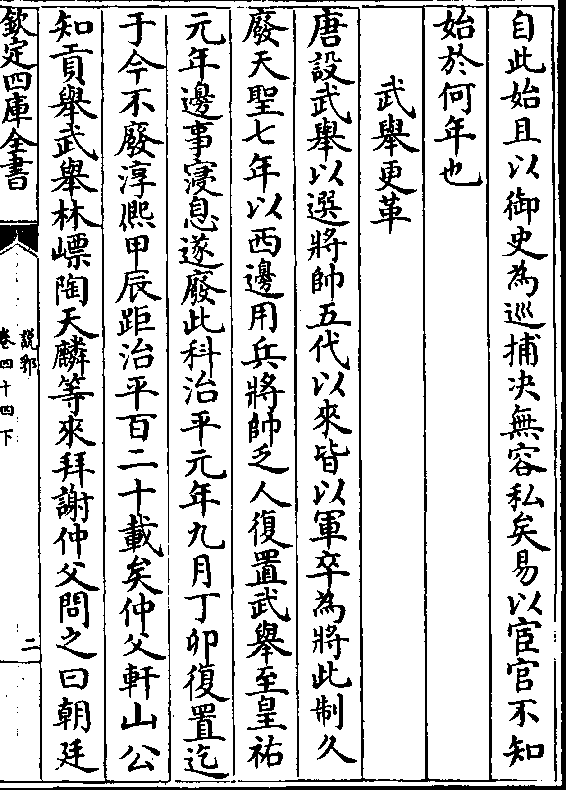 自此始且以御史為巡捕決無容私矣易以宦官不知
始於何年也
武舉更革
唐設武舉以選將帥五代以來皆以軍卒為將此制久
廢天聖七年以西邊用兵將帥乏人復置武舉至皇祐
元年邊事寖息遂廢此科治平元年九月丁卯復置迄
于今不廢淳熈甲辰距治平百二十載矣仲父軒山公
知貢舉武舉林嶫陶天麟等來拜謝仲父問之曰朝廷
欽定四庫全書
說郛
卷四十四下
二